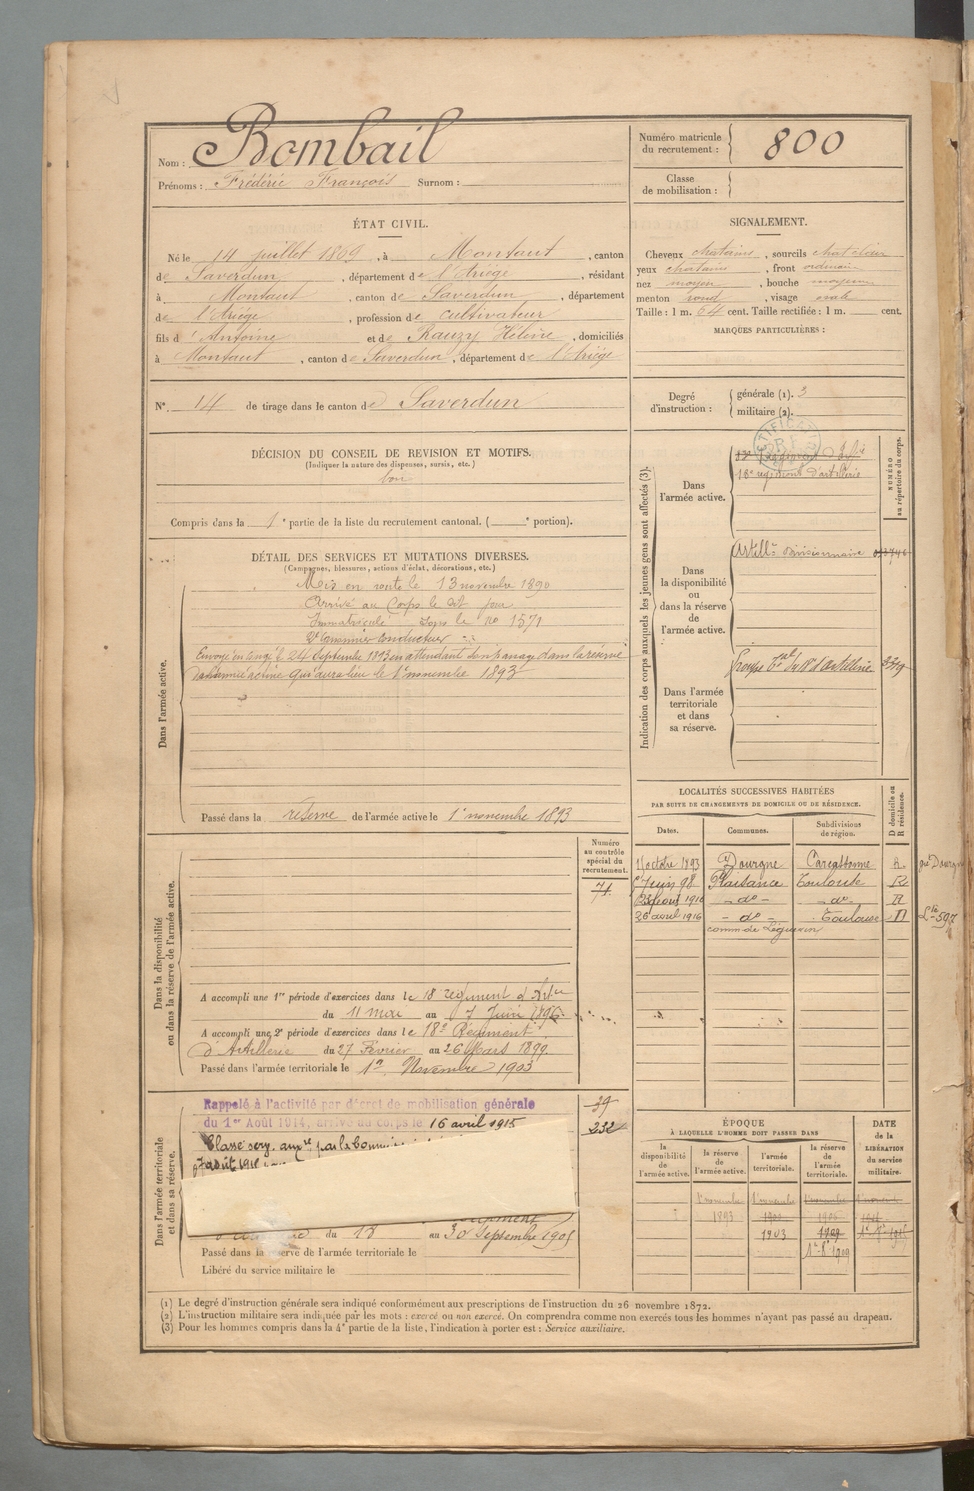 Nom : Bombail
Prénoms : Frédéric François Surnom :
Numéro matricule du recrutement : 800
Classe de mobilisation :
ÉTAT CIVIL.
Né le 14 juillet 1869, à Montaut, canton
de Saverdun, département de l'Ariége, résidant
à Montaut, canton de Saverdun, département
de l'Ariége, profession de cultivateur
fils d'Antoine et de Rauzy Hélène, domiciliés
à Montaut, canton de Saverdun, département de l'Ariége
SIGNALEMENT.
Cheveux chatains, sourcils chat clair
yeux chatains, front ordinaire
nez moyen, bouche moyenne
menton rond, visage ovale
Taille : 1 m. 64 cent. Taille rectifiée : 1 m. cent.
MARQUES PARTICULIÈRES :
N° 14 de tirage dans le canton de Saverdun
Degré d'instruction : générale (1). 3
militaire (2).
DÉCISION DU CONSEIL DE REVISION ET MOTIFS.
(Indiquer la nature des dispenses, sursis, etc.)
bon
Compris dans la 1e partie de la liste du recrutement cantonal. ( e portion).
DÉTAIL DES SERVICES ET MUTATIONS DIVERSES.
(Campagnes, blessures, actions d'éclat, décorations, etc.)
Dans l'armée active.
Mis en route le 13 novembre 1890
Arrivé au Corps le dit jour
Immatriculé sous le no 1571
2e Cannonier conducteur
Envoyé en congé le 24 Septembre 1893 en attendant son passage dans la réserve
de l'armée active qui aura lieu le 1er novembre 1893
Passé dans la réserve de l'armée active le 1er novembre 1893
Indication des corps auxquels les jeunes gens sont affectés (3).
NUMÉRO au répertoire du corps.
Dans l'armée active.
18e régiment d'artillerie
Dans la disponibilité ou dans la réserve de l'armée active.
Artillie divisionnaire
Dans l'armée territoriale et dans sa réserve.
Groupe terral du 18e d'artillerie
LOCALITÉS SUCCESSIVES HABITÉES
PAR SUITE DE CHANGEMENTS DE DOMICILE OU DE RÉSIDENCE.
Dates. Communes. Subdivisions de région. D domicile ou R résidence.
octobre 1893 Dourgne Carcassonne R
Juin 98 Plaisance Toulouse R
1910 - do - - do - R
26 avril 1916 - do - Toulouse D
comm de Léguevin
Dans la disponibilité ou dans la réserve de l'armée active.
Numéro au contrôle spécial du recrutement.
71
A accompli une 1re période d'exercices dans le 18 régiment d'Artie
du 11 mai au 7 Juin 1896
A accompli une 2e période d'exercices dans le 18e Régiment
d'Artillerie du 27 Février au 26 Mars 1899.
Passé dans l'armée territoriale le 1er Novembre 1903
Dans l'armée territoriale et dans sa réserve.
Rappelé à l'activité par décret de mobilisation générale
du 1er Août 1914, arrivé au corps le 16 avril 1915
Classé serv. auxre par la Commis
août
39
232
du 18 au 30 Septembre 1905
Passé dans la réserve de l'armée territoriale le
Libéré du service militaire le
ÉPOQUE
À LAQUELLE L'HOMME DOIT PASSER DANS
DATE de la LIBÉRATION du service militaire.
la disponibilité de l'armée active. la réserve de l'armée active. l'armée territoriale. la réserve de l'armée territoriale.
1er novembre 1er novembre 1er novembre 1er novembre
1893 1900
1903 1909
(1) Le degré d'instruction générale sera indiqué conformément aux prescriptions de l'instruction du 26 novembre 1872.
(2) L'instruction militaire sera indiquée par les mots : exercé ou non exercé. On comprendra comme non exercés tous les hommes n'ayant pas passé au drapeau.
(3) Pour les hommes compris dans la 4e partie de la liste, l'indication à porter est : Service auxiliaire.